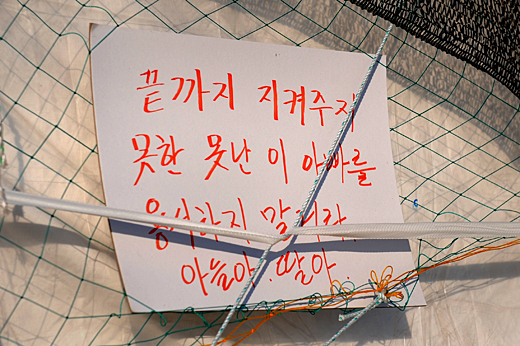 끝까지 지켜주지
못한 못난 이 아빠를
용서하지 말거라.
아들아. 딸아.